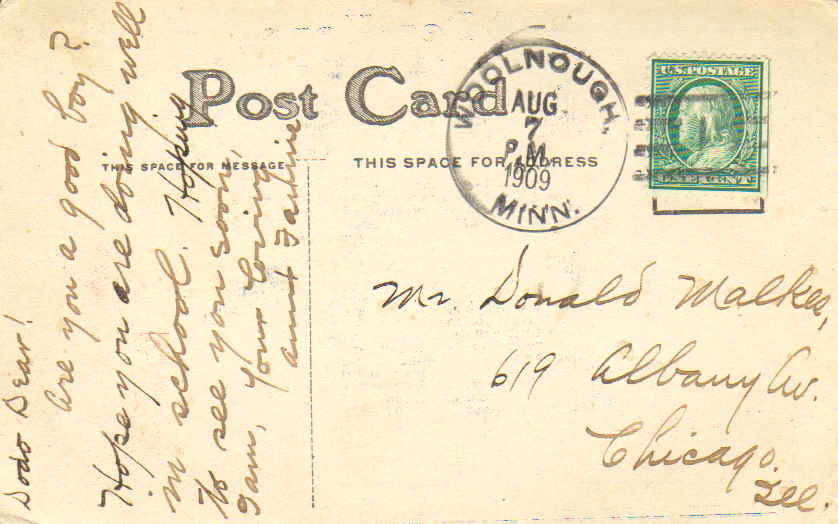 Post Card
THIS SPACE FOR MESSAGE
THIS SPACE FOR ADDRESS
WOOLNOUGH,
AUG
7
P.M.
1909
MINN.
U.S. POSTAGE
ONE CENT
Dodo Dear!
Are you a good boy?
Hope you are doing well
in school. Hoping
to see you soon,
I am, your loving
aunt
Mr Donald
619 Albany Av.
Chicago.
Ill.